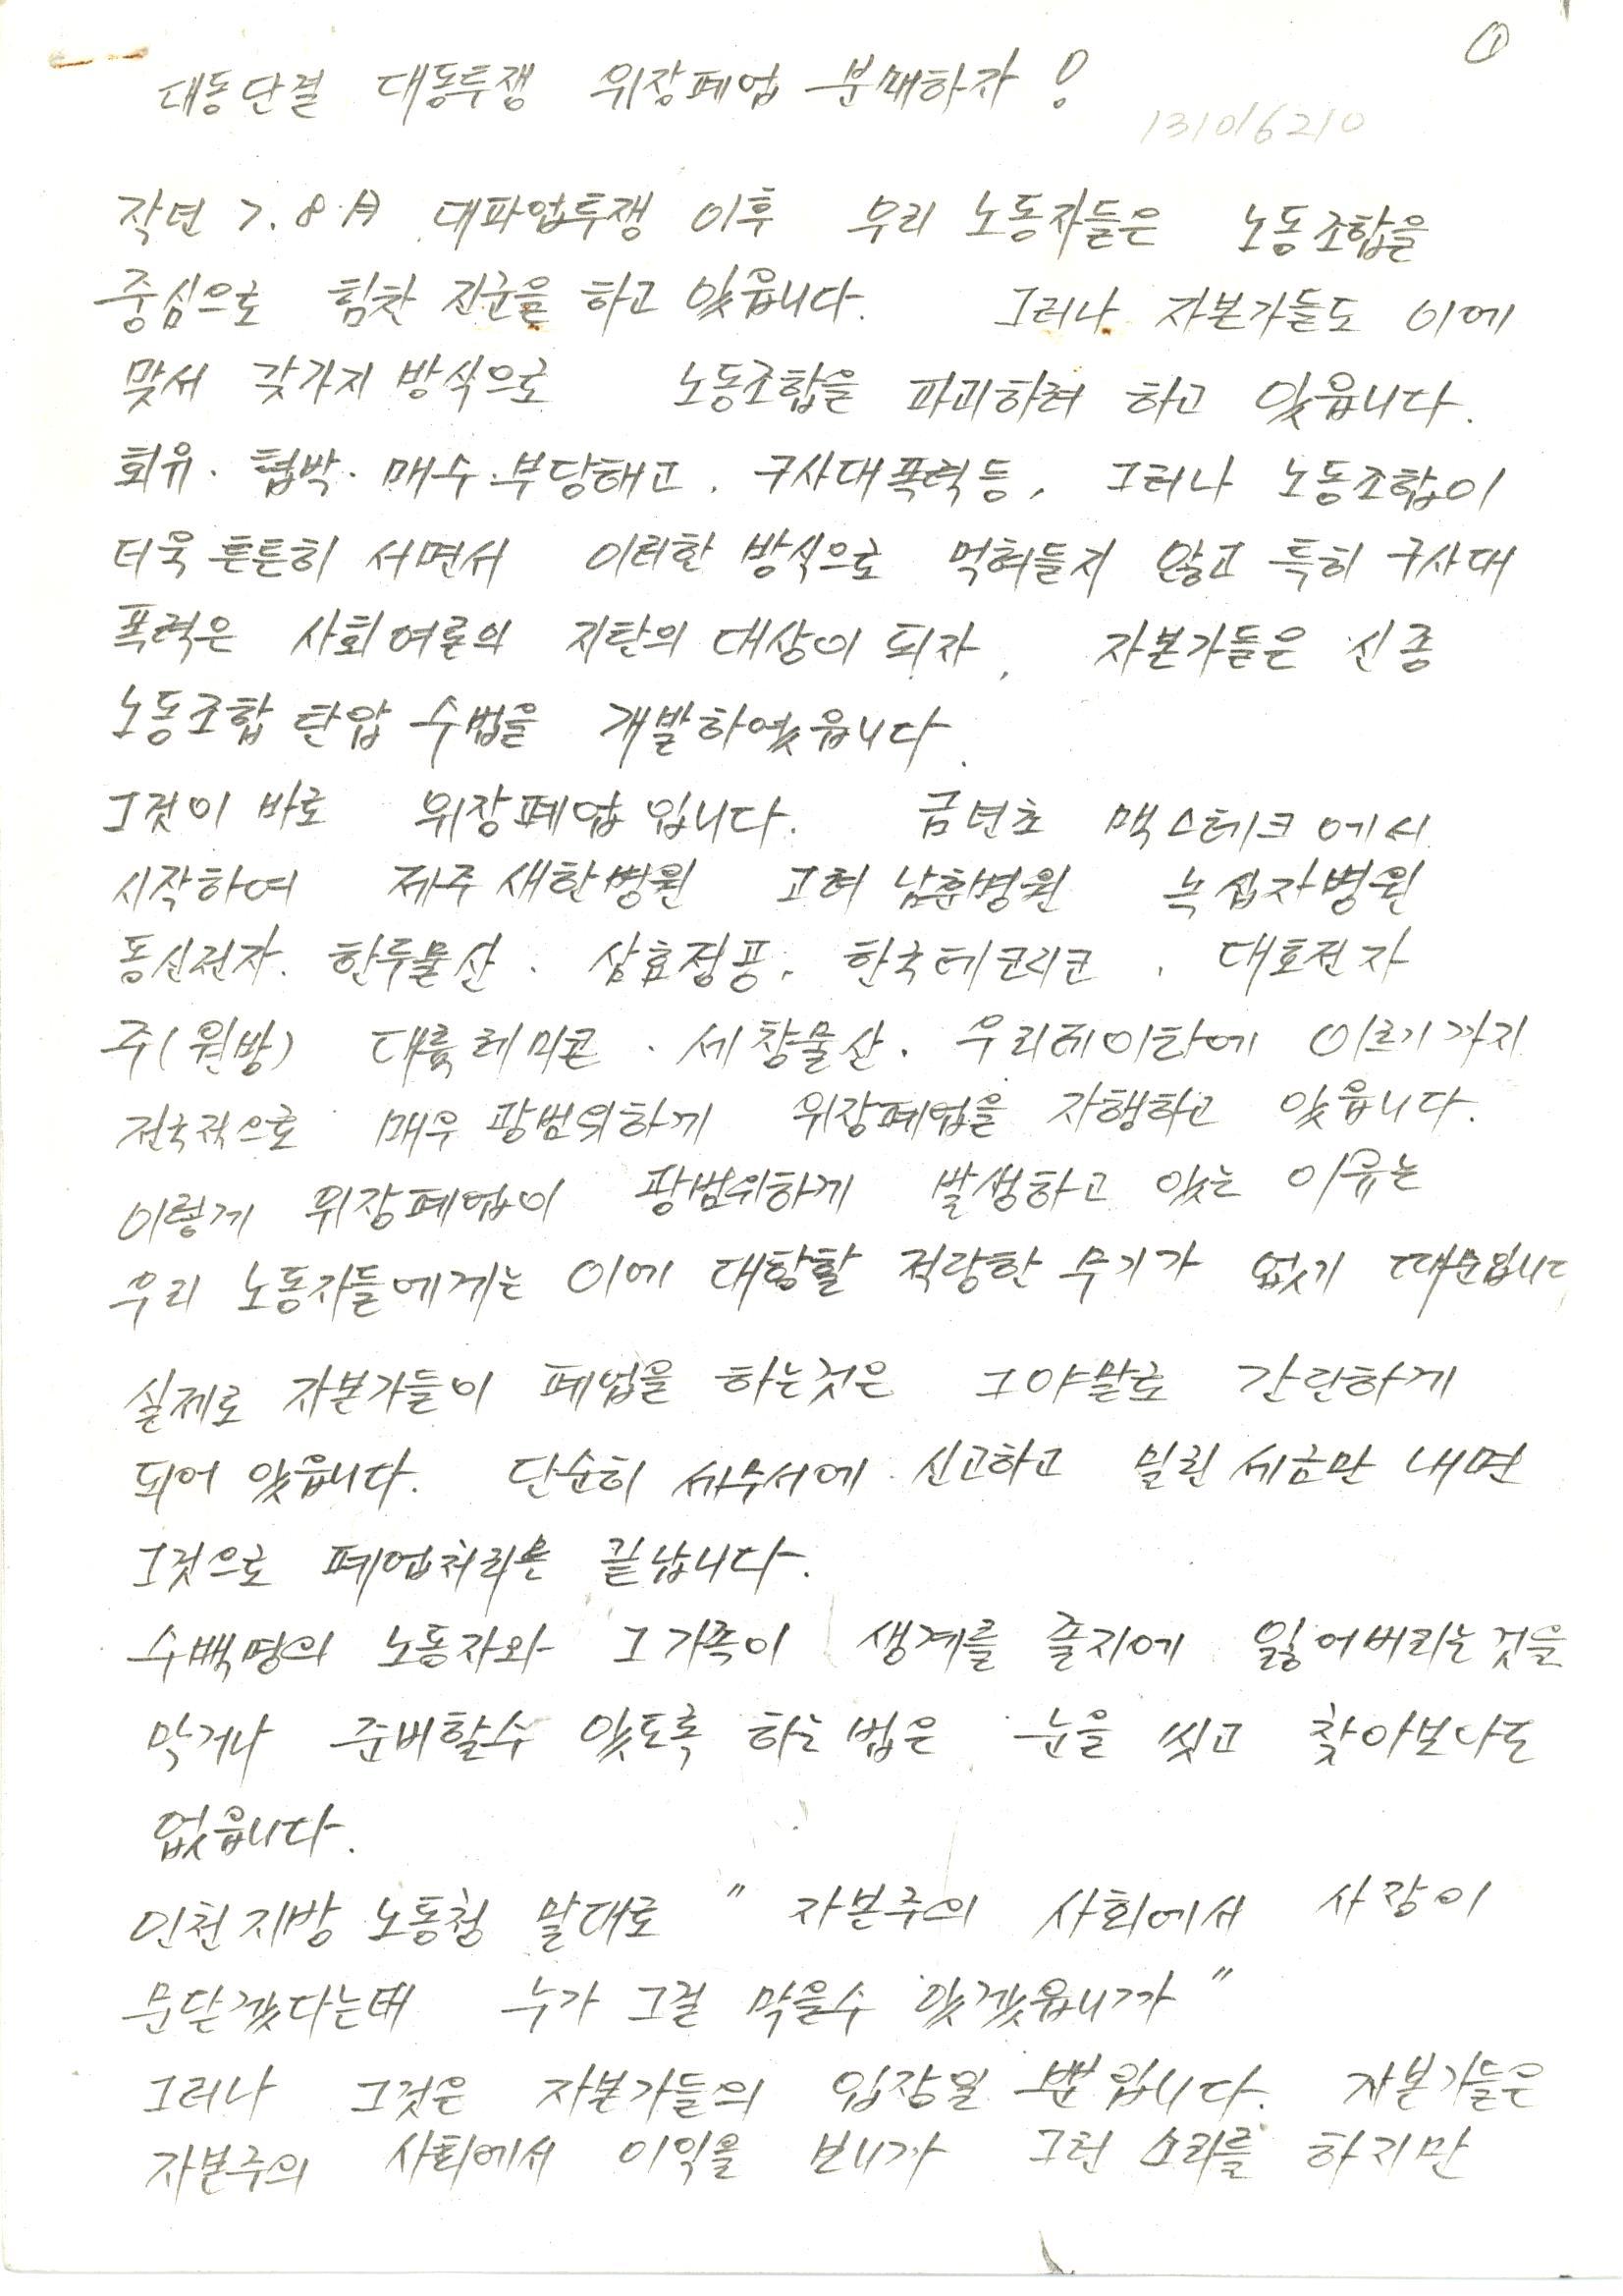 ①
대동단결 대동투쟁 위장폐업 분쇄하자!
131016210
작년 7.8月 대파업투쟁 이후 우리 노동자들은 노동조합을
중심으로 힘찬 진군을 하고 있읍니다. 그러나 자본가들도 이에
맞서 갖가지 방식으로 노동조합을 파괴하려 하고 있읍니다.
회유. 협박. 매수.부당해고. 구사대폭력등, 그러나 노동조합이
더욱 튼튼히 서면서 이러한 방식으로 먹혀들지 않고 특히 구사대
폭력은 사회여론의 지탄의 대상이 되자, 자본가들은 신종
노동조합 탄압 수법을 개발하였읍니다.
그것이 바로 위장폐업입니다. 금년초 맥스테크에서
시작하여 제주 새한병원 고려남훈병원 녹십자병원
동신전자. 한두물산. 삼효정공. 한국테코리코. 대호전자
주(원방) 대륙레미콘. 세창물산. 우리데이타에 이르기까지
전국적으로 매우 광범위하게 위장폐업을 자행하고 있읍니다.
이렇게 위장폐업이 광범위하게 발생하고 있는 이유는
우리 노동자들에게는 이에 대항할 적당한 무기가 없기 때문입니다
실제로 자본가들이 폐업을 하는것은 그야말로 간단하게
되어 있읍니다. 단순히 세무서에 신고하고 밀린 세금만 내면
그것으로 폐업처리는 끝납니다.
수백명의 노동자와 그 가족이 생계를 졸지에 잃어버리는 것을
막거나 준비할수 있도록 하는 법은 눈을 씻고 찾아보아도
없읍니다.
인천지방 노동청 말대로 " 자본주의 사회에서 사장이
문닫겠다는데 누가 그걸 막을수 있겠읍니까 "
그러나 그것은 자본가들의 입장일 뿐입니다. 자본가들은
자본주의 사회에서 이익을 보니까 그런 소리를 하지만